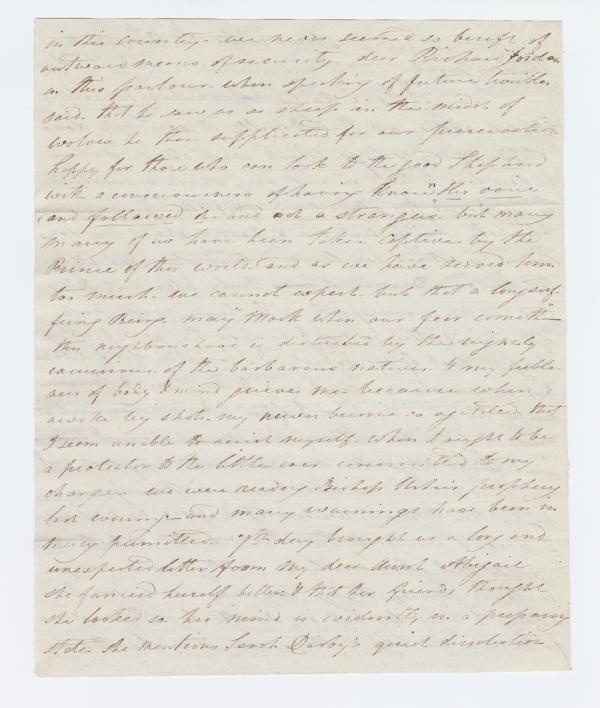 in this country. we never seemed so bereft of
outward means of security dear Richard Jordan
in this parlour when speaking of future troubles
said. that he saw us as sheep in the midst of
wolves he then supplicated for our preservation
happy for those who can look to the good Shepherd
with a consciousness of having known "His voice
(and followed it- and not a strangers. but many
many of us have been taken captive by the
Prince of this world. and as we have served him
too much- we cannot expect- but that a longsuf-
fering Being may "Mock when our fear cometh"-
this neighbourhood is disturbed by the nightly
of the barbarous natives. & my feeble
ness of body & mind grieves me because when
awoke by shots- my nerves become so agitated that
I seem unable to assist myself- when I ought to be
a protector to the little ones committed to my
charge- we were reading Bishop Ushers prophecy
last evening- and many warnings have been in
Mercy permitted. 7th day brought us a long and
unexpected letter from my dear Aunt Abigail
she fancied herself better & that her friends thought
she looked so her mind is evidently in a preparing
state. she mentions Sarah Darby's quiet dissolution